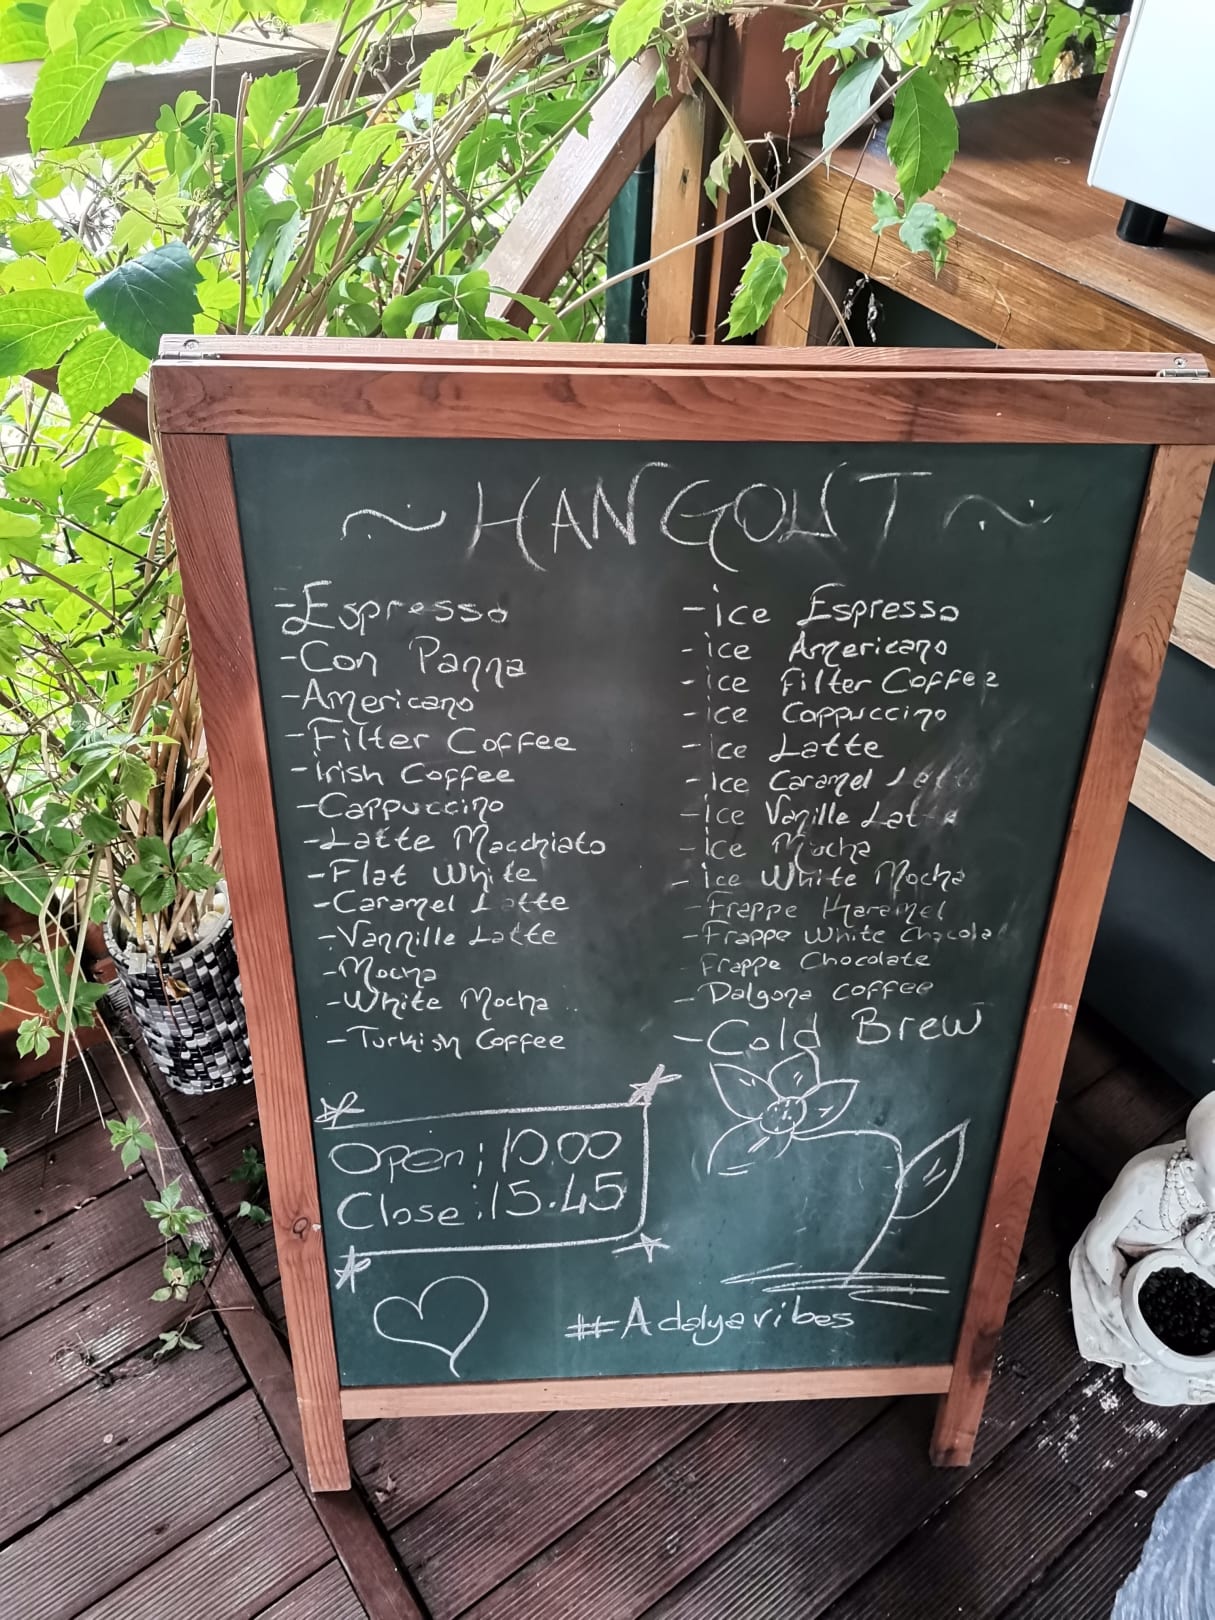 ~ HANGOUT ~
- Espresso
- Con Panna
- Americano
- Filter Coffee
- irish Coffee
- Cappuccino
- Latte Macchiato
- Flat White
- Caramel Latte
- Vannille Latte
- Mocha
- White Mocha
- Turkish Coffee
- ice Espresso
- ice Americano
- ice Filter Coffee
- ice Cappuccino
- ice Latte
- ice Caramel Latte
- ice Vanille Latte
- ice Mocha
- ice White Mocha
- Frappe Karamel
- Frappe White Chocola
- Frappe Chocolate
- Dalgona coffee
- Cold Brew
Open; 10.00
Close: 15.45
#Adalyavibes